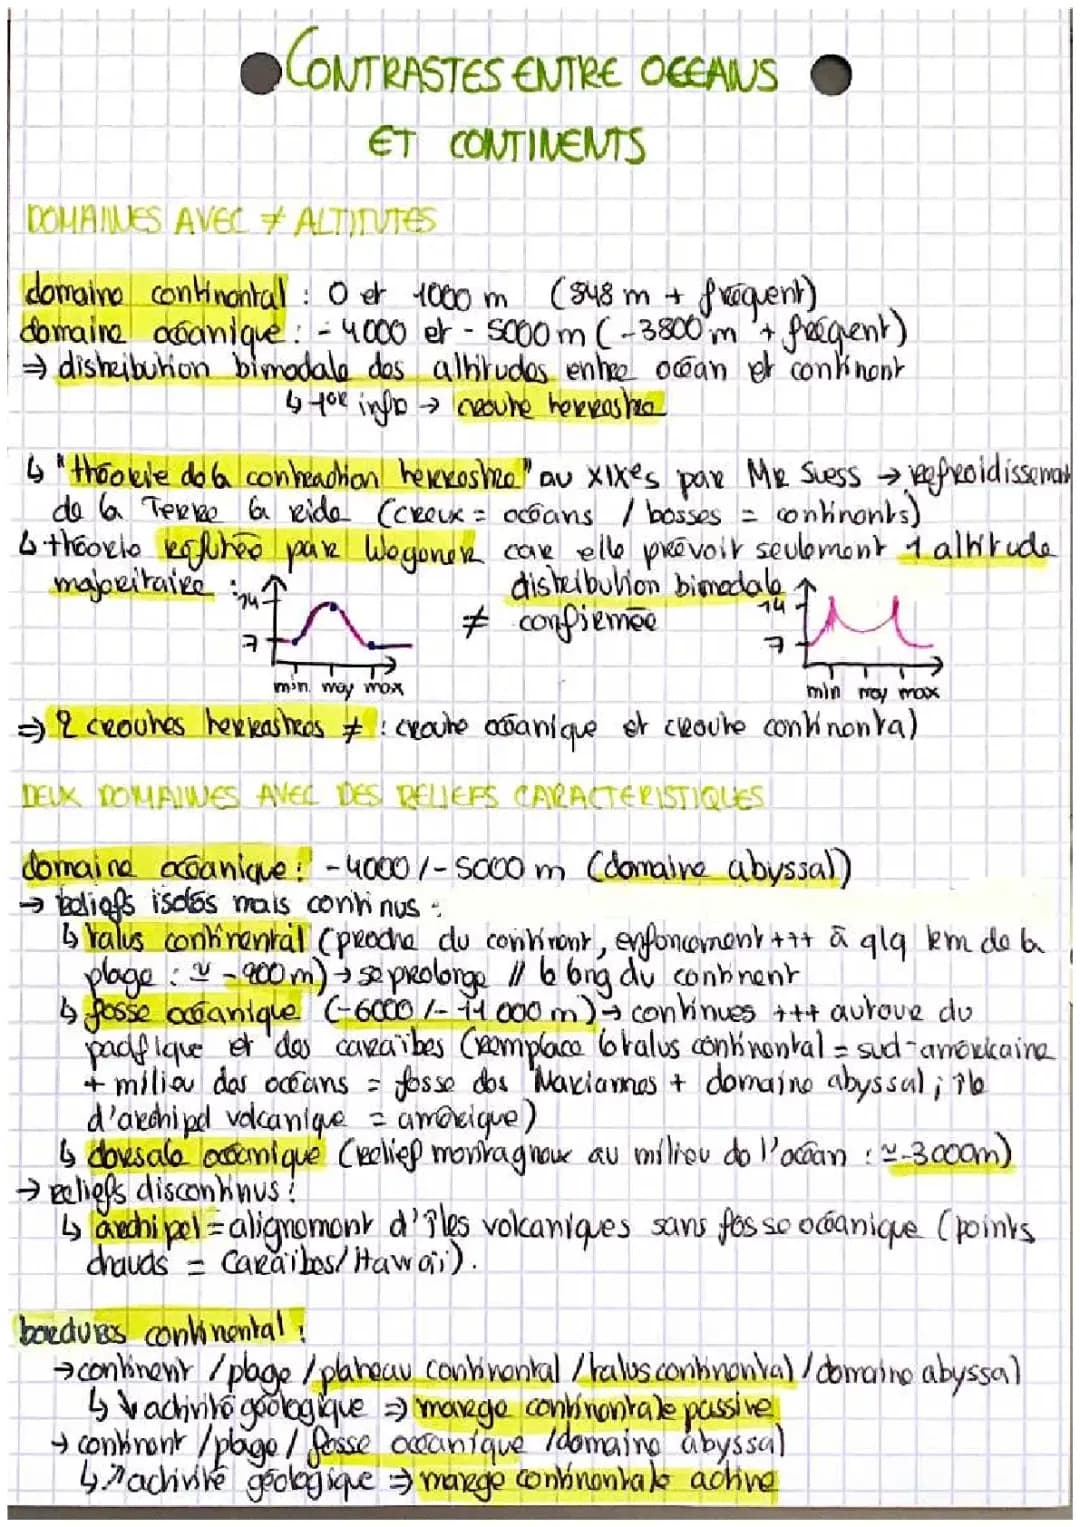 CONTRASTES ENTRE OCEANS
ET CONTINENTS
DOMAINES AVEC ≠ ALTITUTES
domaine continental : 0 et 1000 m (848 m + fréquent)
domaine océanique : - 4000 et - 5000 m (-3800 m + fréquent)
⇒ distribution bimodale des altitudes entre océan et continent
↳ 1ère info → croute terrestre
↳ "théorie de la contraction terrestre" au XIXes par Mr Suess → refroidissement
de la Terre la ride (creux = océans / bosses = continents)
↳ théorie réfutée par Wegener car elle prévoit seulement 1 altitude
majoritaire : distribution bimodale
≠ confirmée
14
7
min moy max
14
7
min moy max
⇒ 2 croutes terrestres ≠ : croute océanique et croute continental
DEUX DOMAINES AVEC DES RELIEFS CARACTERISTIQUES
domaine océanique : -4000 / -5000 m (domaine abyssal)
→ reliefs isolés mais continus :
↳ talus continental (proche du continent, enfoncement +++ à qlq km de la
plage : ≃ -900 m) → se prolonge // le long du continent
↳ fosse océanique (-6000 / -11 000 m) → continues +++ autour du
pacifique et des caraïbes (remplace le talus continental = sud-américaine
+ milieu des océans = fosse des Mariannes + domaine abyssal ; île
d'archipel volcanique = amérique)
↳ dorsale océanique (relief montagneux au milieu de l'océan : ≃ -3000m)
→ reliefs discontinus :
↳ archipel = alignement d'îles volcaniques sans fosse océanique (points
chauds = Caraïbes/Hawaïi).
bordures continental :
→ continent / plage / plateau continental / talus continental / domaine abyssal
↳ ↘ activité géologique ⇒ marge continentale passive
→ continent / plage / fosse océanique / domaine abyssal
↳ ↗ activité géologique ⇒ marge continentale active